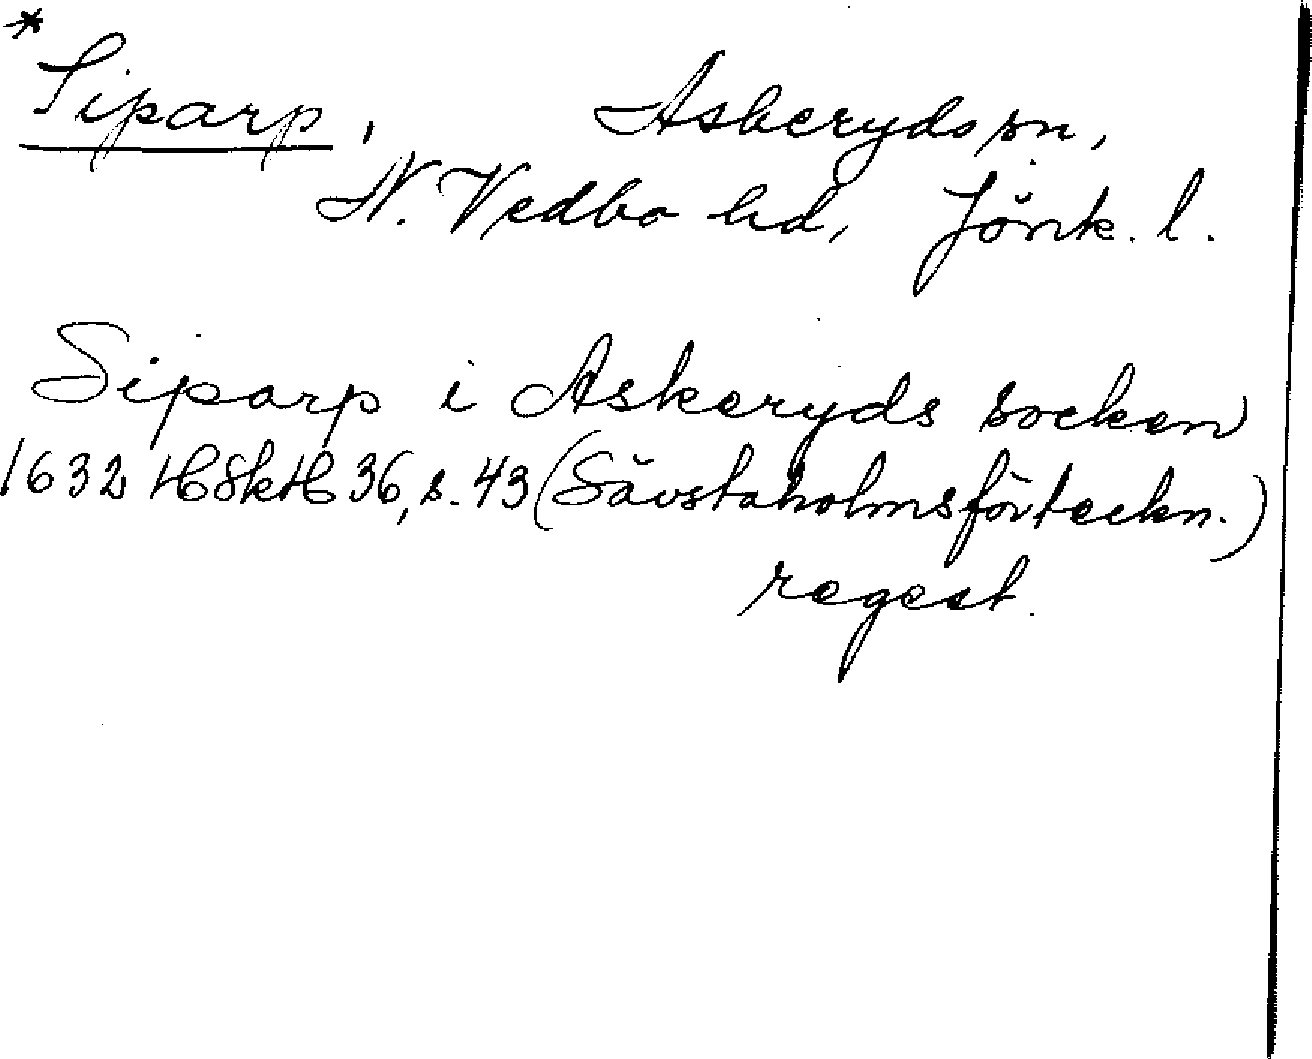 *
Siparp, Askeryds sn,
N. Vedbo hd, Jönk. l.
Siparp i Askeryds socken
1632 HSkH 36, s. 43 (Sävstaholmsförteckn.)
regest.